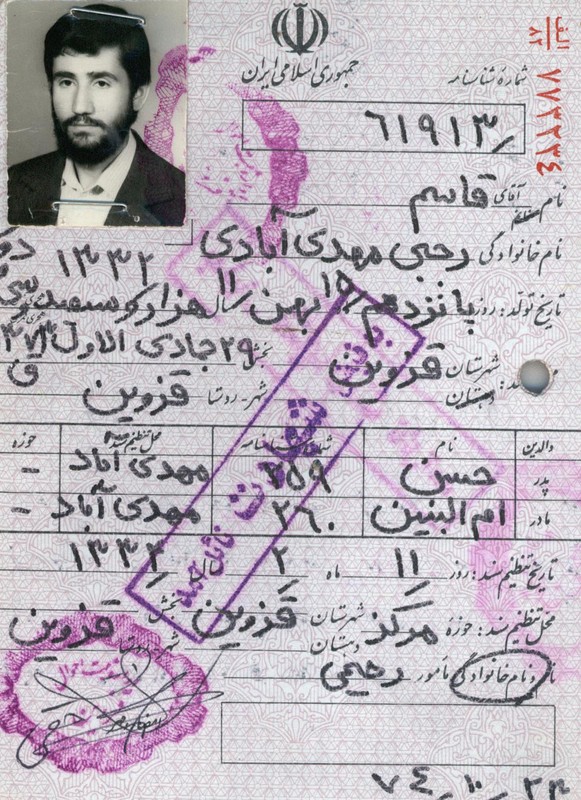 جمهوری اسلامی ایران
الف
۸۲
۷۷۳۲۲۴
شمارهٔ شناسنامه
۶۱۹۱۳/
نام آقای قاسم
نام خانوادگی رجبی مهدی آبادی
۱۳۳۲
تاریخ تولد: روز پانزدهم ۱۵/ بهمن ۱۱/ سال هزار و سیصد و سی
۲۹ جمادی الاول
شهرستان قزوین بخش
دهستان شهر - روستا قزوین
والدین نام شماره شناسنامه محل تنظیم سند حوزه
پدر حسن ۲۵۹ مهدی آباد -
مادر ام البنین ۲۶۰ مهدی آباد -
تاریخ تنظیم سند: روز ۱۱/ ماه ۲/ سال ۱۳۳۲
محل تنظیم سند: حوزه مرکز شهرستان قزوین بخش
دهستان شهر - روستا قزوین
نام و نام خانوادگی مأمور رحیمی
بدرجه رفیع شهادت نائل گردید
۷۴/۱۰/۲۴